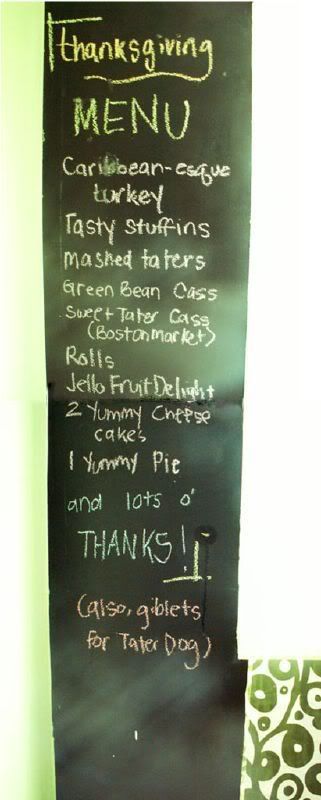 thanksgiving
MENU
Caribbean-esque
turkey
Tasty stuffins
mashed taters
Green Bean Cass
sweet Tater Cass
(Boston market)
Rolls
Jello Fruit Delight
2 Yummy Cheese
cakes
1 Yummy Pie
and lots o'
THANKS!
(also, giblets
for Tater Dog)